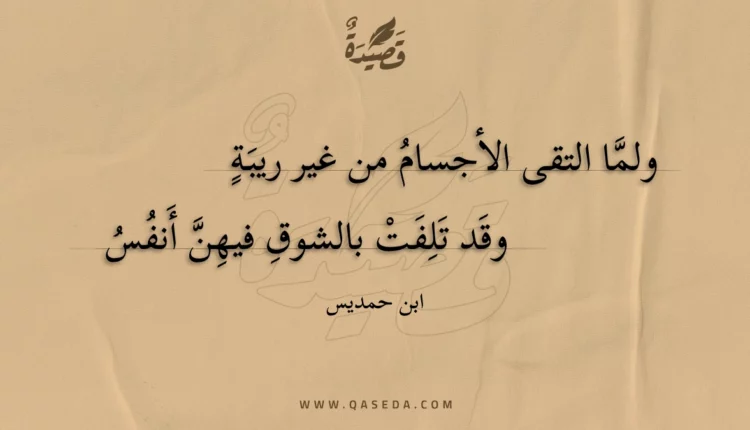 قَصِيْدَةٌ
ولمَّا التقى الأجسامُ من غير ريبَةٍ
وقَد تَلِفَتْ بالشوقِ فيهِنَّ أَنفُسُ
ابن حمديس
WWW.QASEDA.COM